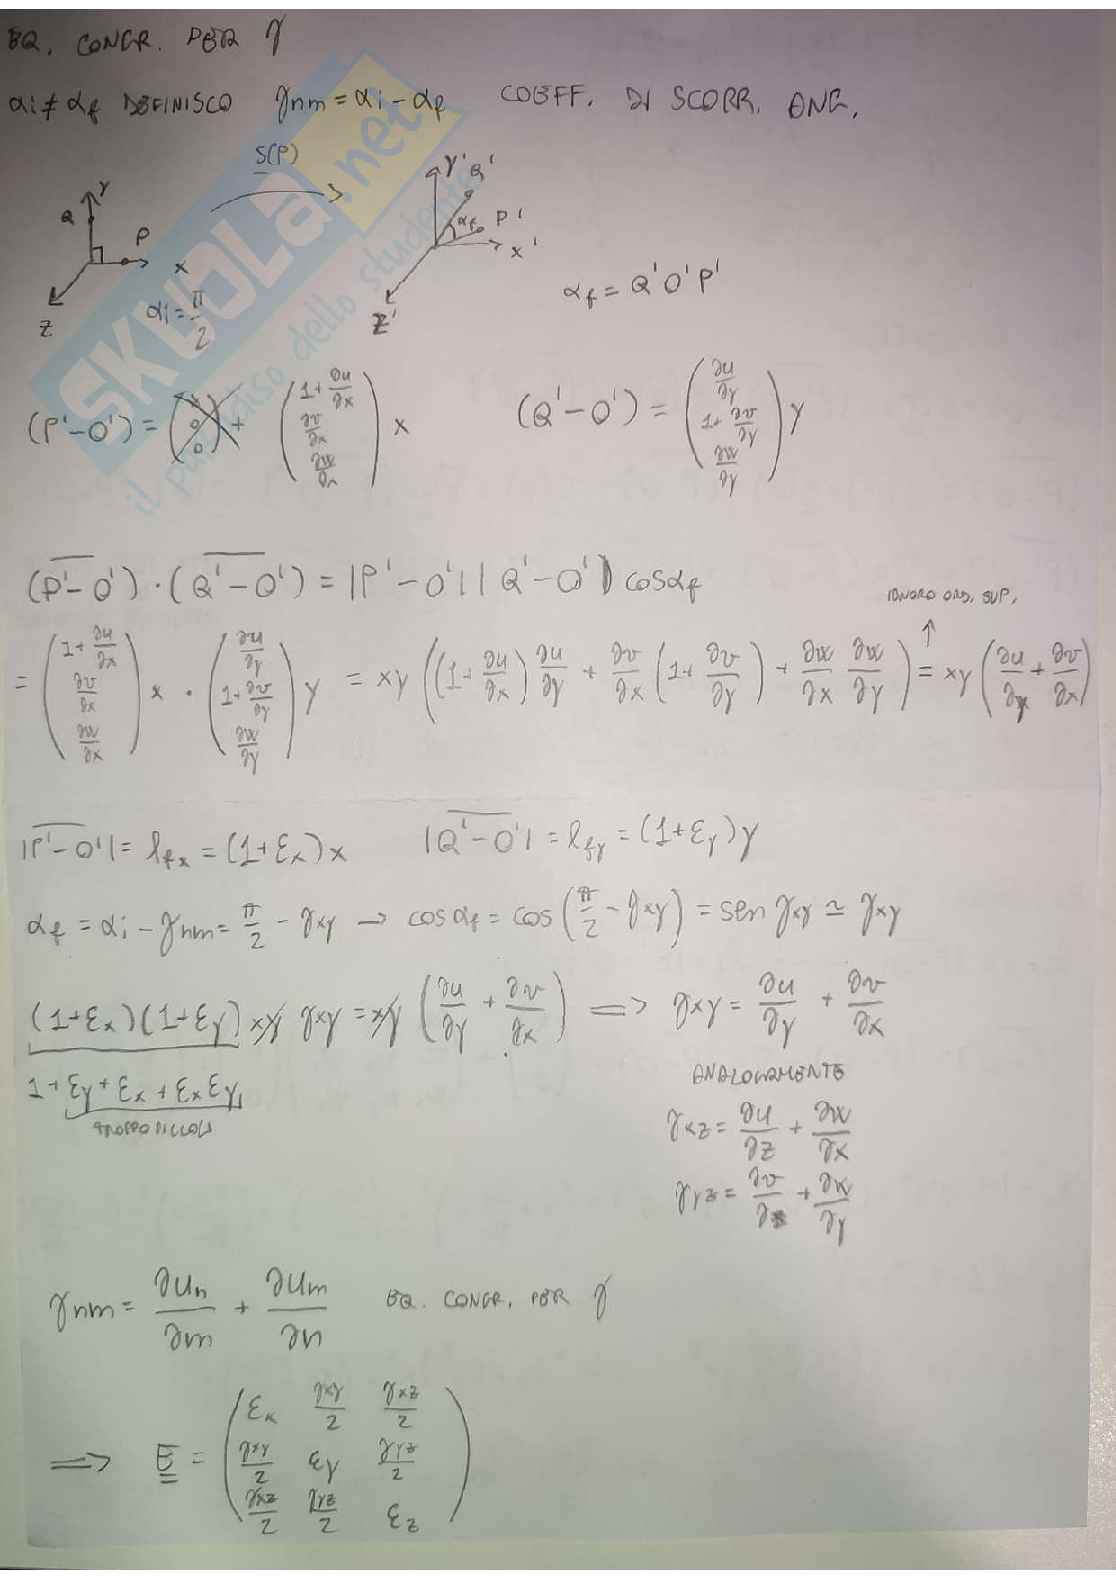 EQ. CONGR. PER γ
αi ≠ αf DEFINISCO γnm = αi - αf COEFF. DI SCORR. ANG.
S(P)
y Q P x z αi = π/2
y' Q' αf P' x' z'
αf = Q'O'P'
(P'-O') = (0 0 0) + (1+∂u/∂x, ∂v/∂x, ∂w/∂x) x (Q'-O') = (∂u/∂y, 1+∂v/∂y, ∂w/∂y) y
(P'-O') · (Q'-O') = |P'-O'| |Q'-O'| cosαf
IGNORO ORD. SUP.
= (1+∂u/∂x, ∂v/∂x, ∂w/∂x) x · (∂u/∂y, 1+∂v/∂y, ∂w/∂y) y = xy ((1+∂u/∂x) ∂u/∂y + ∂v/∂x (1+∂v/∂y) + ∂w/∂x ∂w/∂y) = xy (∂u/∂y + ∂v/∂x)
|P'-O'| = lfx = (1+εx)x |Q'-O'| = lfy = (1+εy)y
αf = αi - γnm = π/2 - γxy → cosαf = cos(π/2 - γxy) = sen γxy ≃ γxy
(1+εx)(1+εy) xy γxy = xy (∂u/∂y + ∂v/∂x) ⟹ γxy = ∂u/∂y + ∂v/∂x
1 + εy + εx + εxεy
TROPPO PICCOLI
ANALOGAMENTE
γxz = ∂u/∂z + ∂w/∂x
γyz = ∂v/∂z + ∂w/∂y
γnm = ∂un/∂m + ∂um/∂n EQ. CONGR. PER γ
⟹ E = (εx γxy/2 γxz/2
γxy/2 εy γyz/2
γxz/2 γyz/2 εz)
SKUOLA.net
il paradiso dello studente